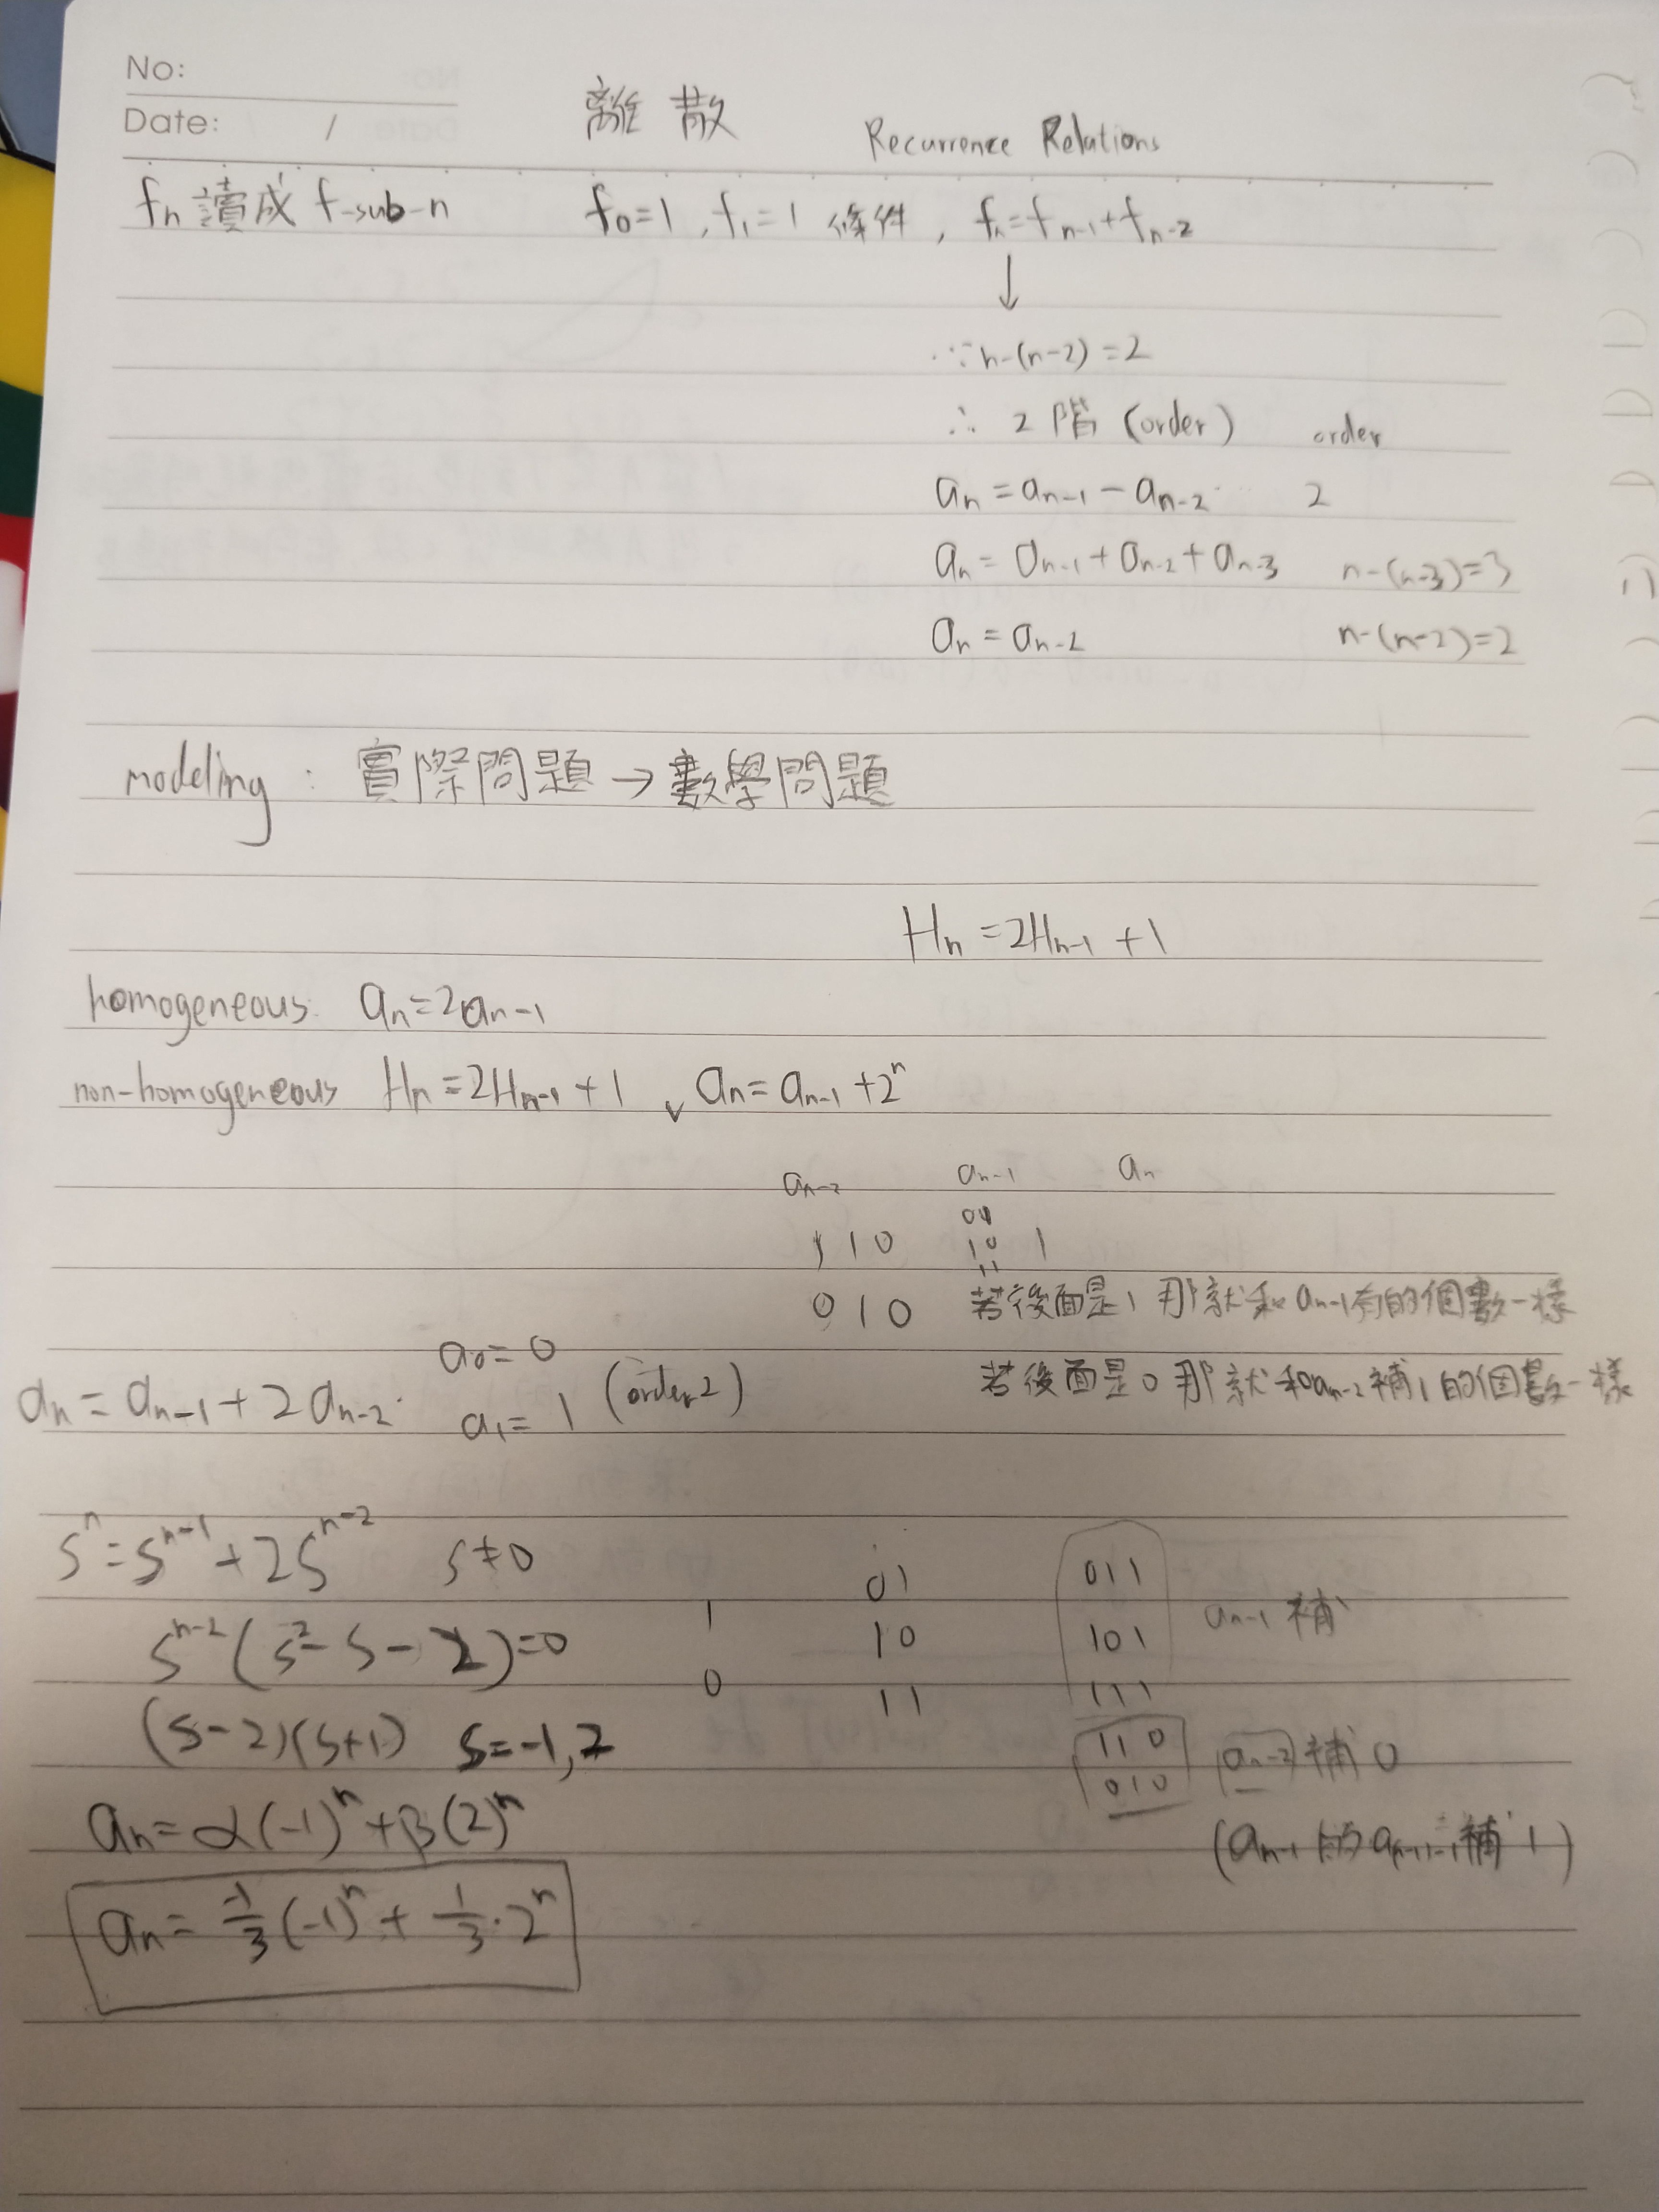 No:
Date: /
離散 Recurrence Relations
fn 讀成 f-sub-n f₀=1, f₁=1 條件, fₙ=fₙ₋₁+fₙ₋₂
↓
∵ n-(n-2)=2
∴ 2階 (order) order
aₙ = aₙ₋₁ - aₙ₋₂ 2
aₙ = aₙ₋₁ + aₙ₋₂ + aₙ₋₃ n-(n-3)=3
aₙ = aₙ₋₂ n-(n-2)=2
modeling : 實際問題 → 數學問題
Hₙ = 2Hₙ₋₁ + 1
homogeneous: aₙ=2aₙ₋₁
non-homogeneous Hₙ=2Hₙ₋₁+1, aₙ=aₙ₋₁+2ⁿ
aₙ₋₂ aₙ₋₁ aₙ
110 10 1
11
010 若後面是1 那就和aₙ₋₁有的個數一樣
a₀=0
若後面是0那就和aₙ₋₂補1的個數一樣
aₙ = aₙ₋₁ + 2aₙ₋₂.
a₁=1 (order 2)
sⁿ=sⁿ⁻¹+2sⁿ⁻² s≠0
01 011
1
sⁿ⁻²(s²-s-2)=0
10 101 aₙ₋₁補
0 11 111
(s-2)(s+1) s=-1,2
110 aₙ₋₂補0
010
aₙ=α(-1)ⁿ+β(2)ⁿ
(aₙ₋₁的aₙ₋₁₋₁補1)
aₙ = -1/3 (-1)ⁿ + 1/3 · 2ⁿ